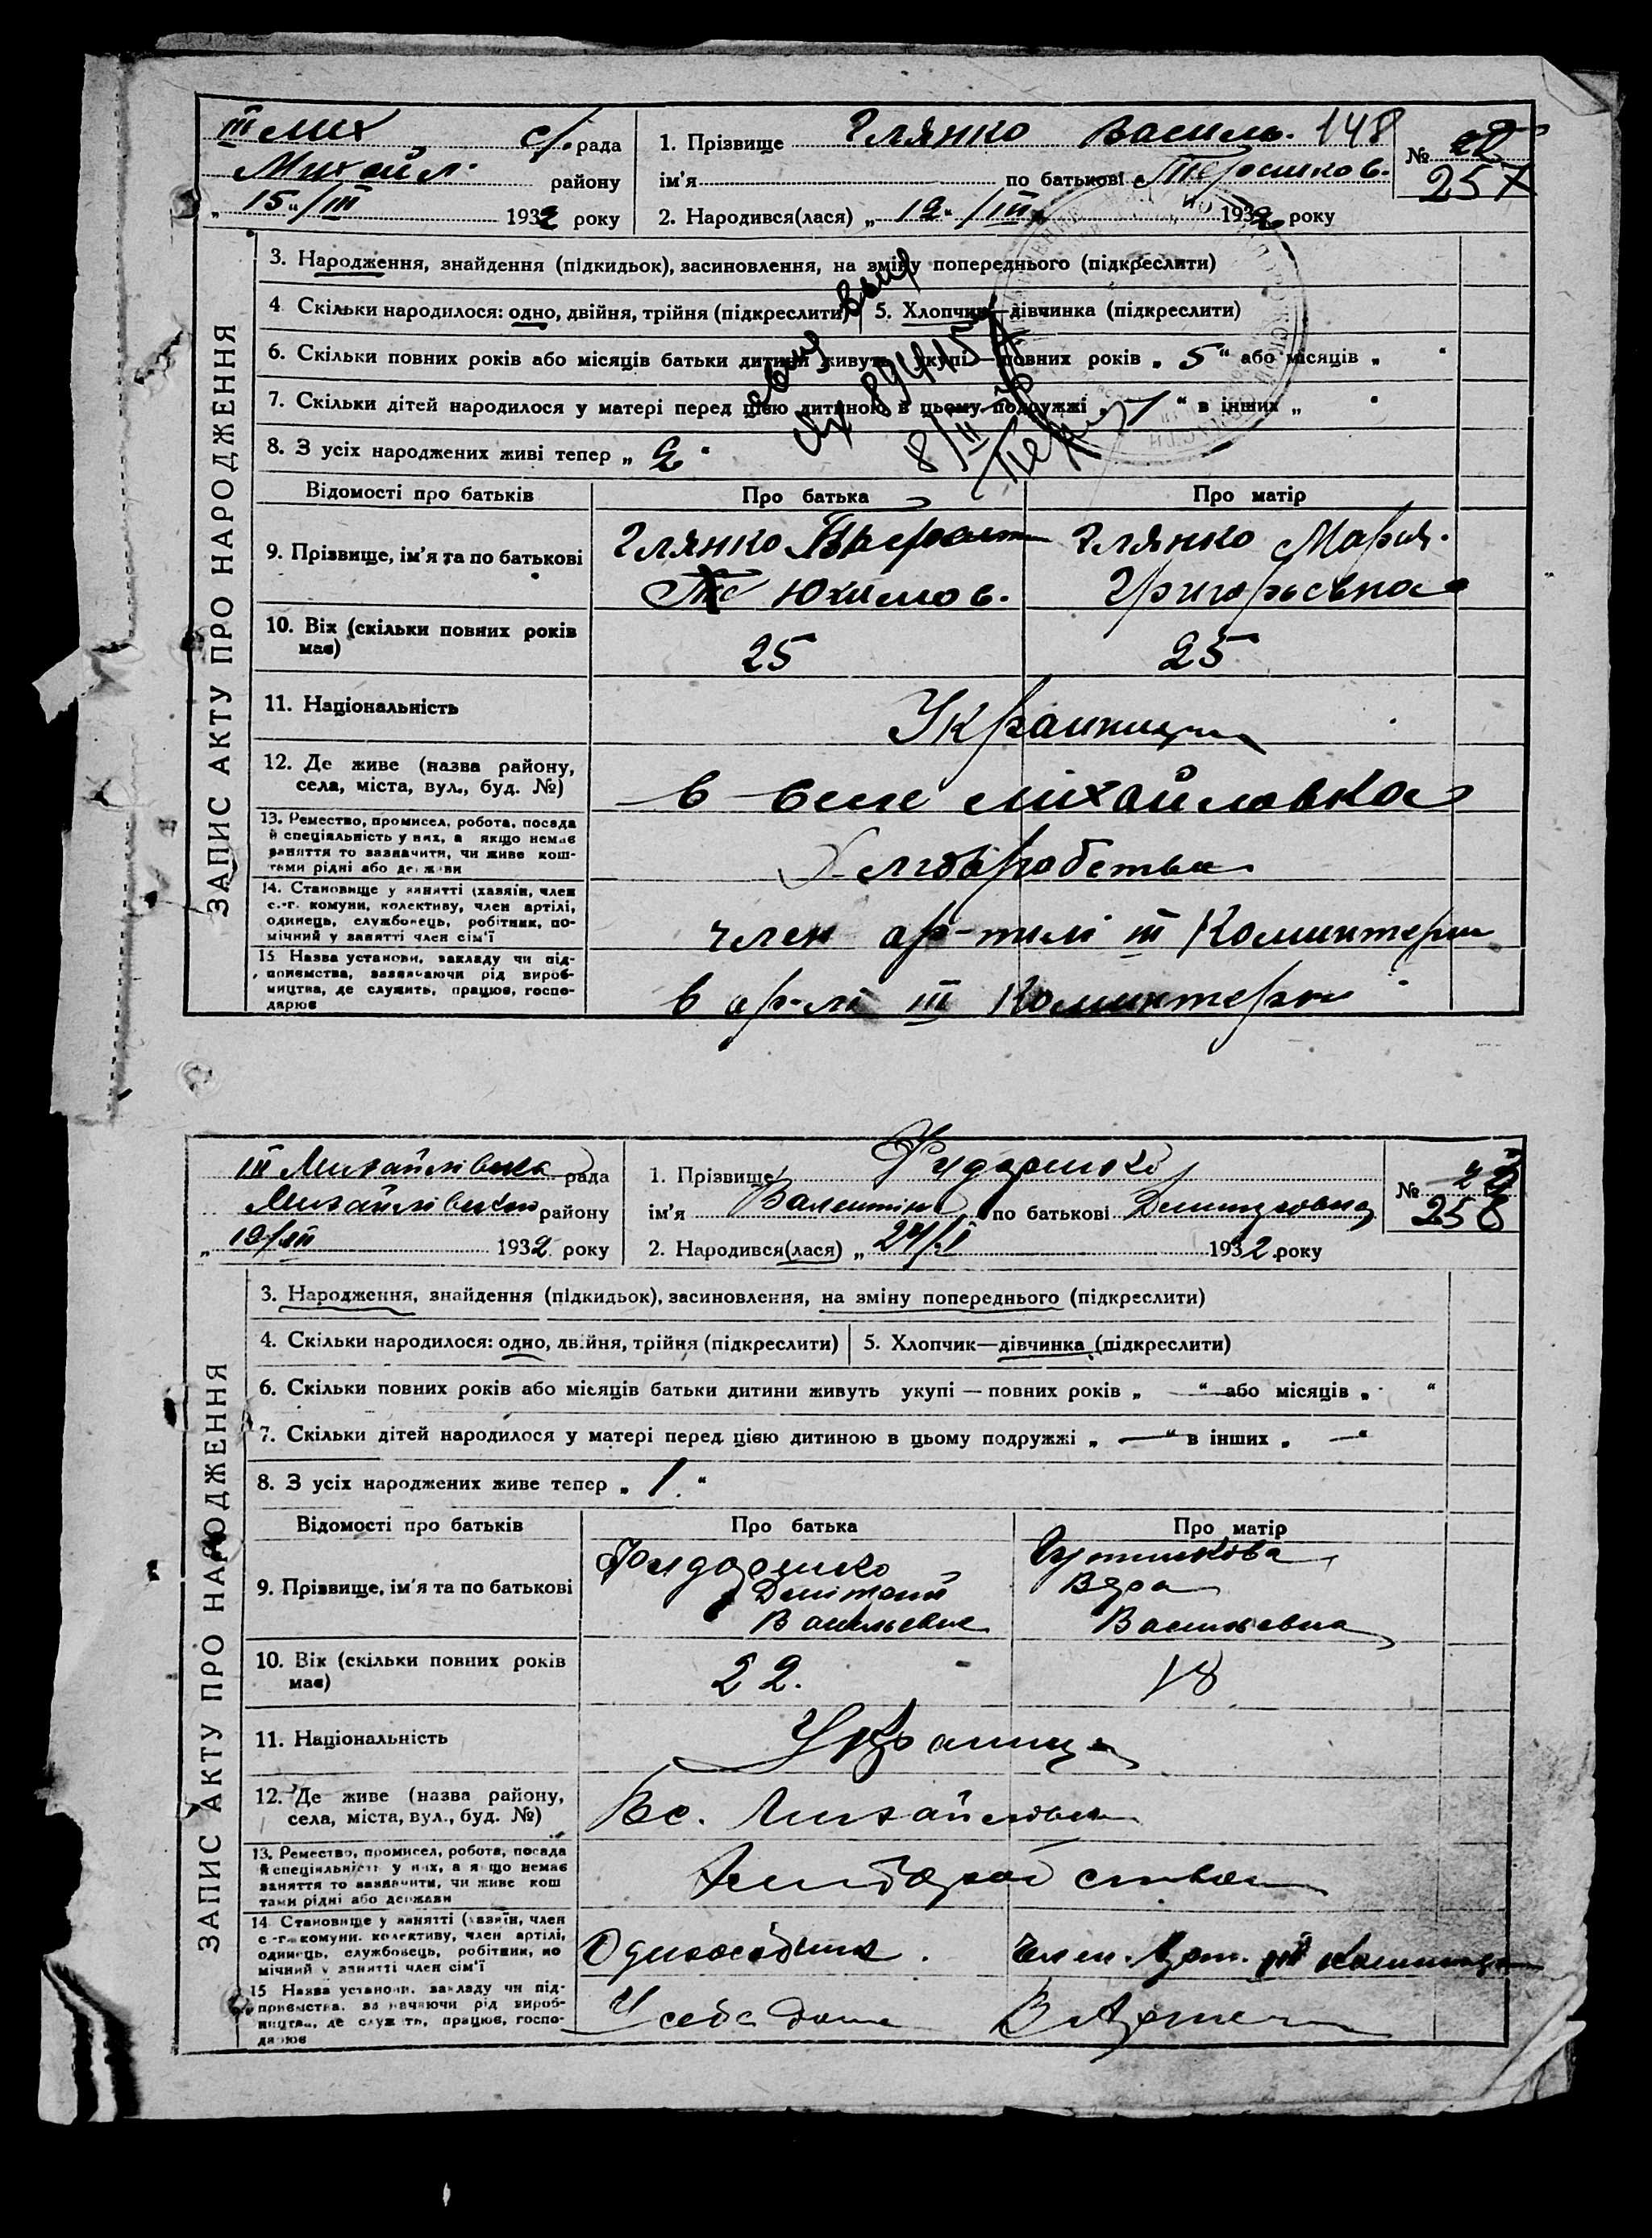 III Мих с/. рада
Михайл. району
„ 15 " / III 1932 року
1. Прізвище Глянко Василь. 148
ім'я по батькові
2. Народився(лася) „ 12 " / III 1932 року
№ 22
257
ЗАПИС АКТУ ПРО НАРОДЖЕННЯ
3. Народження, знайдення (підкидьок), засиновлення, на зміну попереднього (підкреслити)
4 Скільки народилося: одно, двійня, трійня (підкреслити) 5. Хлопчик—дівчинка (підкреслити)
6. Скільки повних років або місяців батьки дитини живуть укупі — повних років „ 5 “ або місяців „ “
7. Скільки дітей народилося у матері перед цією дитиною в цьому подружжі „ 1 “ в інших „ “
8. З усіх народжених живі тепер „ 2 “
Відомості про батьків Про батька Про матір
9. Прізвище, ім'я та по батькові
Глянко
Юхимов.
Глянко Мария.
Григорьевна
10. Вік (скільки повних років
має)
25 25
11. Національність
Украинци
12. Де живе (назва району,
села, міста, вул., буд. №)
в селе Михайловка
13. Ремество, промисел, робота, посада
й спеціяльність у них, а якщо немає
заняття то зазначити, чи живе кош-
тами рідні або держави
Хлгборобство
14. Становище у занятті (хазяїн, член
с.-г. комуни, колективу, член артілі,
одинець, службовець, робітник, по-
мічний у занятті член сім'ї
член ар-тилі III Коминтерн
15 Назва установи, закладу чи під-
приємства, зазначаючи рід вироб-
ництва, де служить, працює, госпо-
дарює
в ар-лі III Коминтерн
III Михайлівська рада
Михайлівського району
„ 19/III 1932 року
1. Прізвище Фидоренко
ім'я Валентина по батькові
2. Народився(лася) „ 24/I 1932 року
№ 23
258
ЗАПИС АКТУ ПРО НАРОДЖЕННЯ
3. Народження, знайдення (підкидьок), засиновлення, на зміну попереднього (підкреслити)
4. Скільки народилося: одно, двійня, трійня (підкреслити) 5. Хлопчик—дівчинка (підкреслити)
6. Скільки повних років або місяців батьки дитини живуть укупі — повних років „ — “ або місяців „ “
7. Скільки дітей народилося у матері перед цією дитиною в цьому подружжі „ — “ в інших „ — “
8. З усіх народжених живе тепер „ 1. “
Відомості про батьків Про батька Про матір
9. Прізвище, ім'я та по батькові
Фидоренко
Васильевич
Вера
Васильевна
10. Вік (скільки повних років
має)
22. 18
11. Національність
Украинци
12. Де живе (назва району,
села, міста, вул., буд. №)
В с. Михайловка
13. Ремество, промисел, робота, посада
й спеціяльність у них, а якщо немає
заняття то зазначити, чи живе кош
тами рідні або держави
14 Становище у занятті (хазяїн, член
с -г. комуни. колективу, член артілі,
одинець, службовець, робітник, по
мічний у занятті член сім'ї
Одноособник. Член. Арт. III Коминтерн
15 Назва установи. закладу чи під-
приємства. зазначаючи рід вироб-
ництва, де служить, працює, госпо-
дарює
У себе дома В Артели